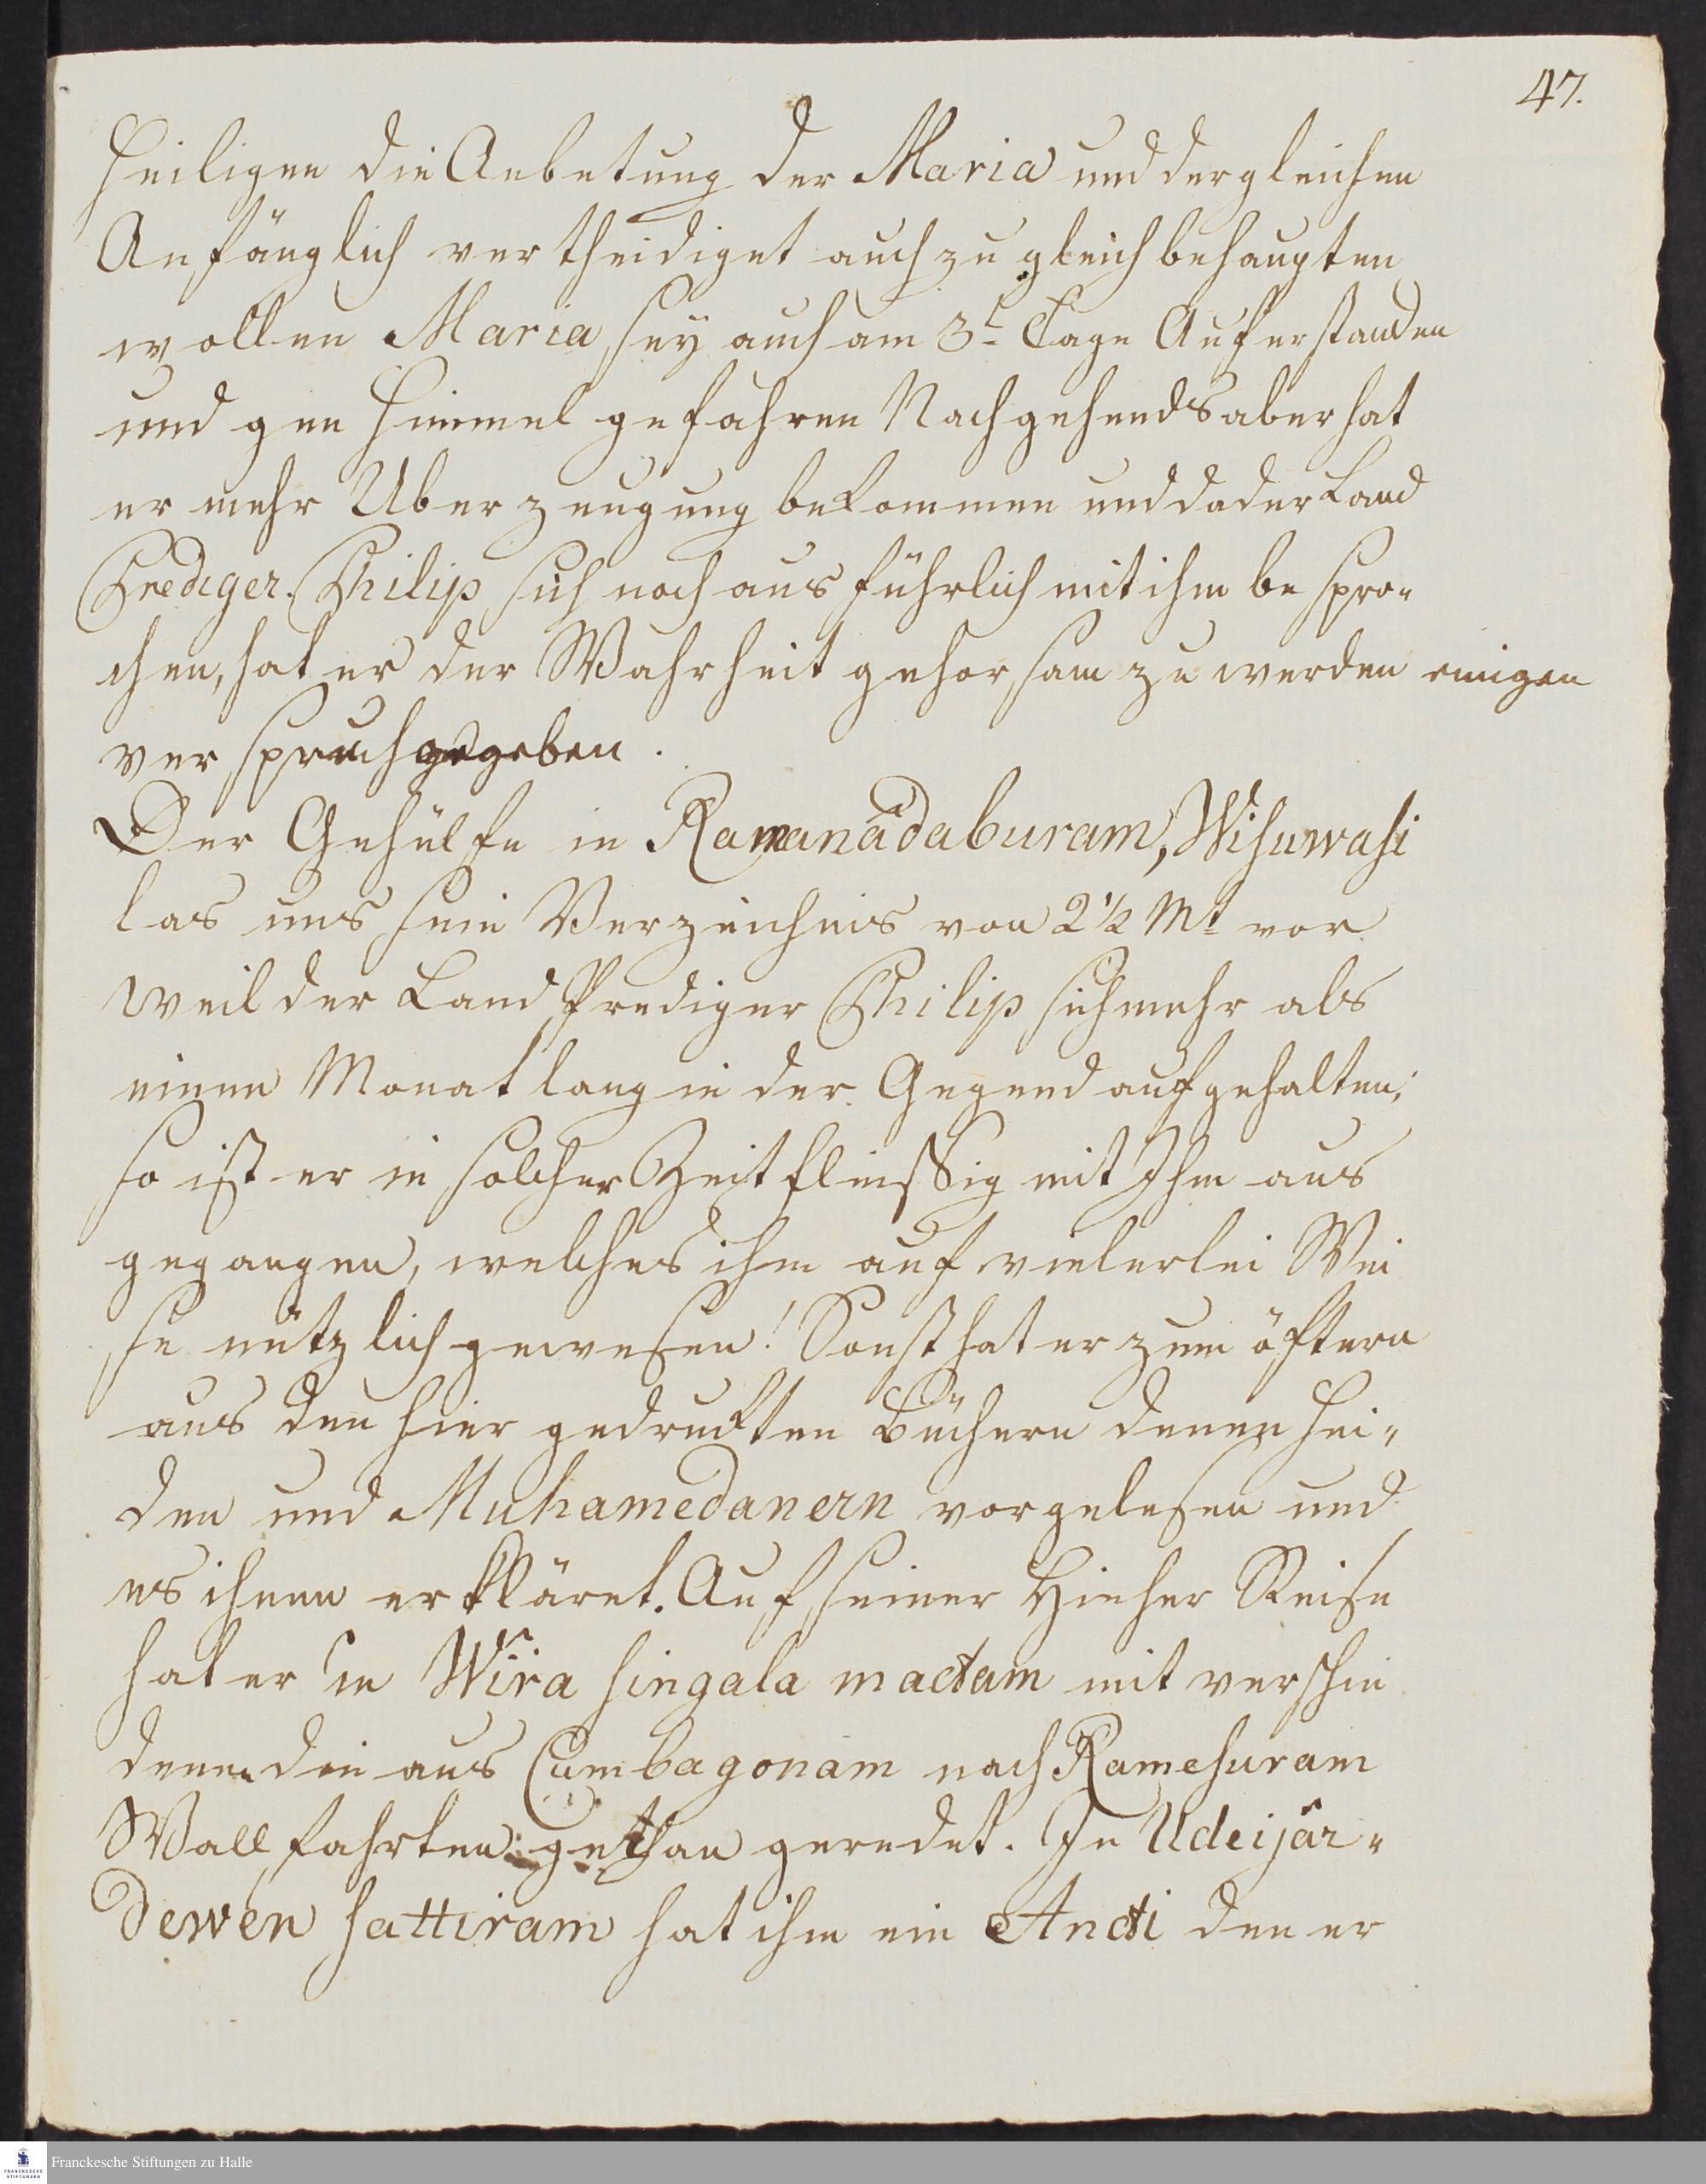 47.
Heiligen die Anbetung der Maria und dergleichen
Anfänglich vertheidiget auch zugleich behaupten
wollen Maria sey auch am 3t Tage Auferstanden
und gen Himmel gefahren Nachgehends aber hat
er mehr Uberzeugung bekommen und da der Land
Prediger Philip sich noch ausführlich mit ihm bespro-
chen, hat er der Wahrheit gehorsam zu werden einigen
verspruch gegeben.
Der Gehülfe in Ramanâdaburam, Wisuwasi
las uns sein Verzeichnis von 2 1/2 Mt vor
weil der Land Prediger Philip sich mehr als
einen Monat lang in der Gegend aufgehalten;
so ist er in solcher Zeit fleissig mit Ihm aus
gegangen, welches ihm auf vielerlei Wei
se nützlich gewesen! Sonst hat er zum öftern
aus den hier gedruckten Büchern denen Hei-
den und Muhamedanern vorgelesen und
es ihnen erkläret. Auf seiner Hieher Reise
hat er in Wîra singala mactam mit verschie
denen die aus Cumbagonam nach Ramesuram
Wallfahrten gethan geredet. In Udeijâr-
dewen sattiram hat ihm ein Ancti den er
Franckesche Stiftungen zu Halle
FRANCKESCHE
STIFTUNGEN